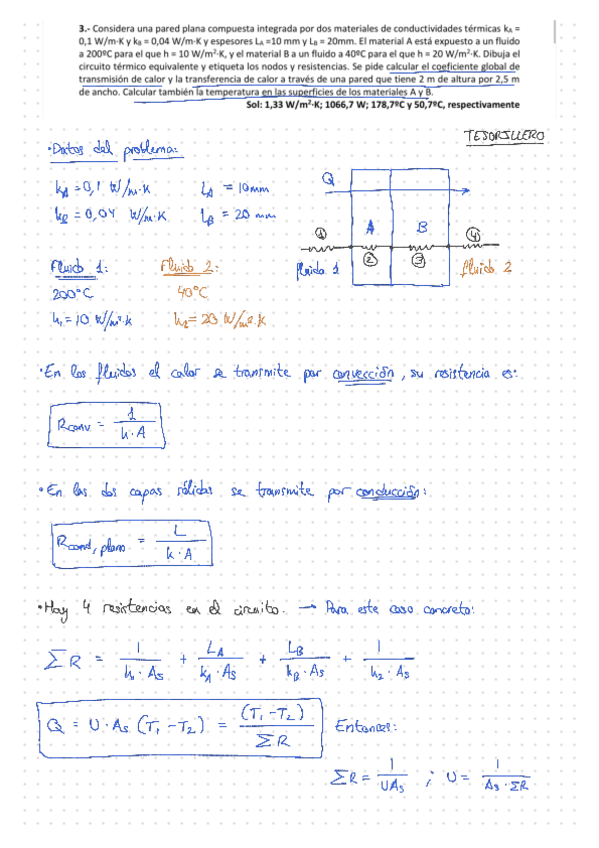 3.- Considera una pared plana compuesta integrada por dos materiales de conductividades térmicas kA =
0,1 W/m·K y kB = 0,04 W/m·K y espesores LA =10 mm y LB = 20mm. El material A está expuesto a un fluido
a 200ºC para el que h = 10 W/m²·K, y el material B a un fluido a 40ºC para el que h = 20 W/m²·K. Dibuja el
circuito térmico equivalente y etiqueta los nodos y resistencias. Se pide calcular el coeficiente global de
transmisión de calor y la transferencia de calor a través de una pared que tiene 2 m de altura por 2,5 m
de ancho. Calcular también la temperatura en las superficies de los materiales A y B.
Sol: 1,33 W/m²·K; 1066,7 W; 178,7ºC y 50,7ºC, respectivamente
TESORILLERO
· Datos del problema:
kA = 0,1 W/m·K LA = 10mm
kB = 0,04 W/m·K LB = 20 mm
Q
A B
① ② ③ ④
fluido 1 fluido 2
Fluido 1: Fluido 2:
200°C 40°C
h1 = 10 W/m²·K h2 = 20 W/m²·K
· En los fluidos el calor se transmite por convección, su resistencia es:
Rconv = 1 / h·A
· En las dos capas sólidas se transmite por conducción:
Rcond, plano = L / k·A
· Hay 4 resistencias en el circuito. → Para este caso concreto:
ΣR = 1 / h1·As + LA / kA·As + LB / kB·As + 1 / h2·As
Q = U·As (T1 - T2) = (T1 - T2) / ΣR Entonces:
ΣR = 1 / UAs ; U = 1 / As·ΣR